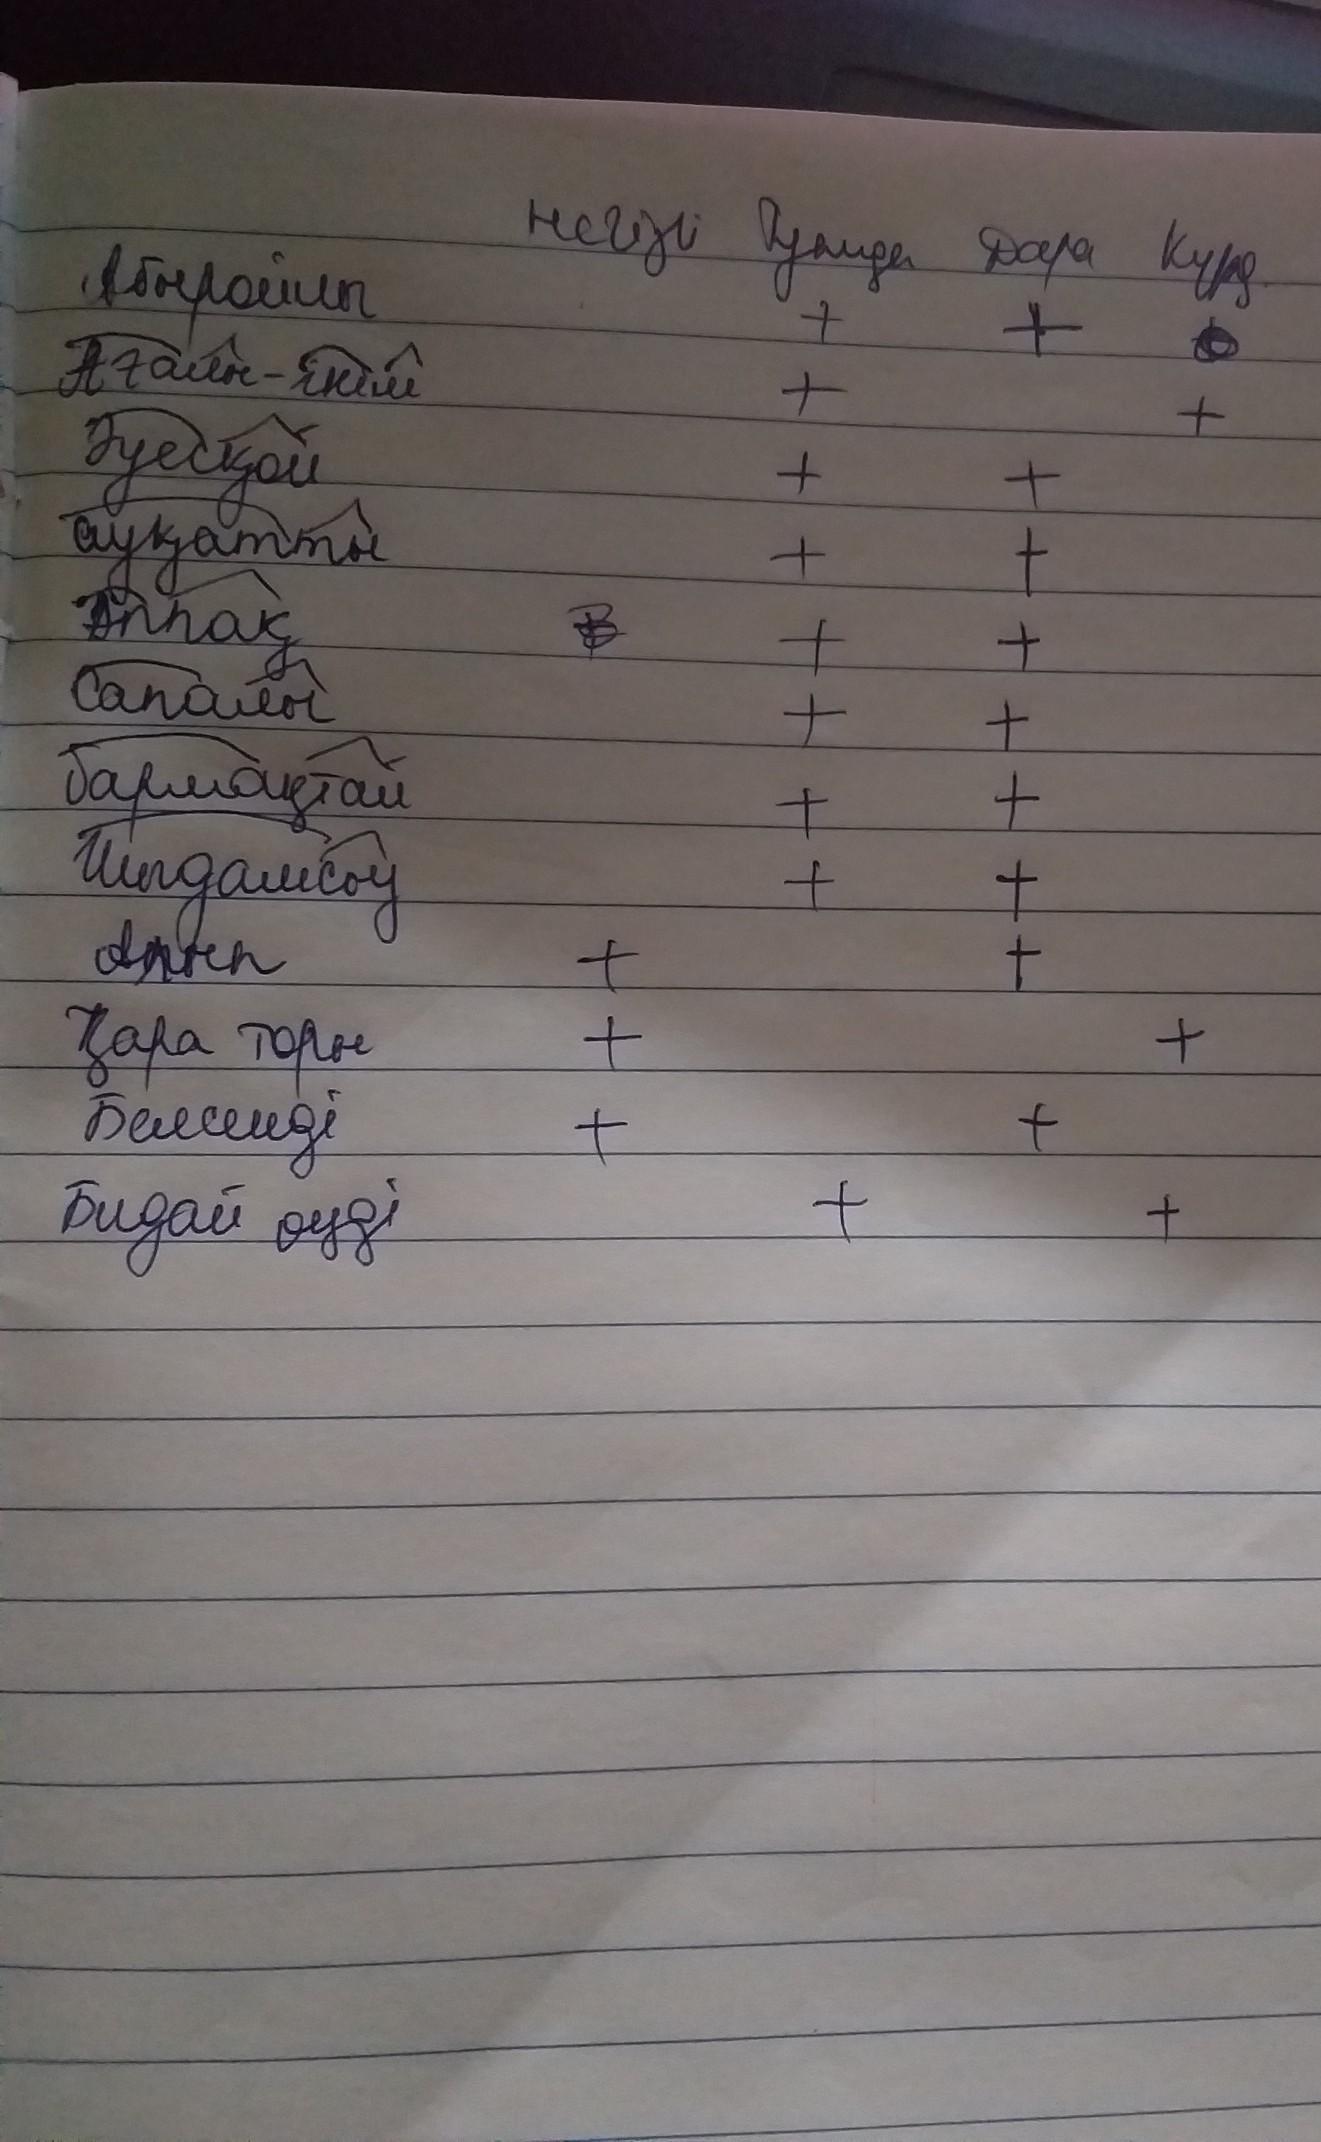 негізгі Туынды Дара Күрд.
Абыройлы + +
Ағалы-інілі + +
Әуесқой + +
ауқатты + +
Аппақ + +
Сапалы + +
бармақтай + +
Шыдамсыз + +
Алып + +
Қара торы + +
Белсенді + +
Бидай өңді + +